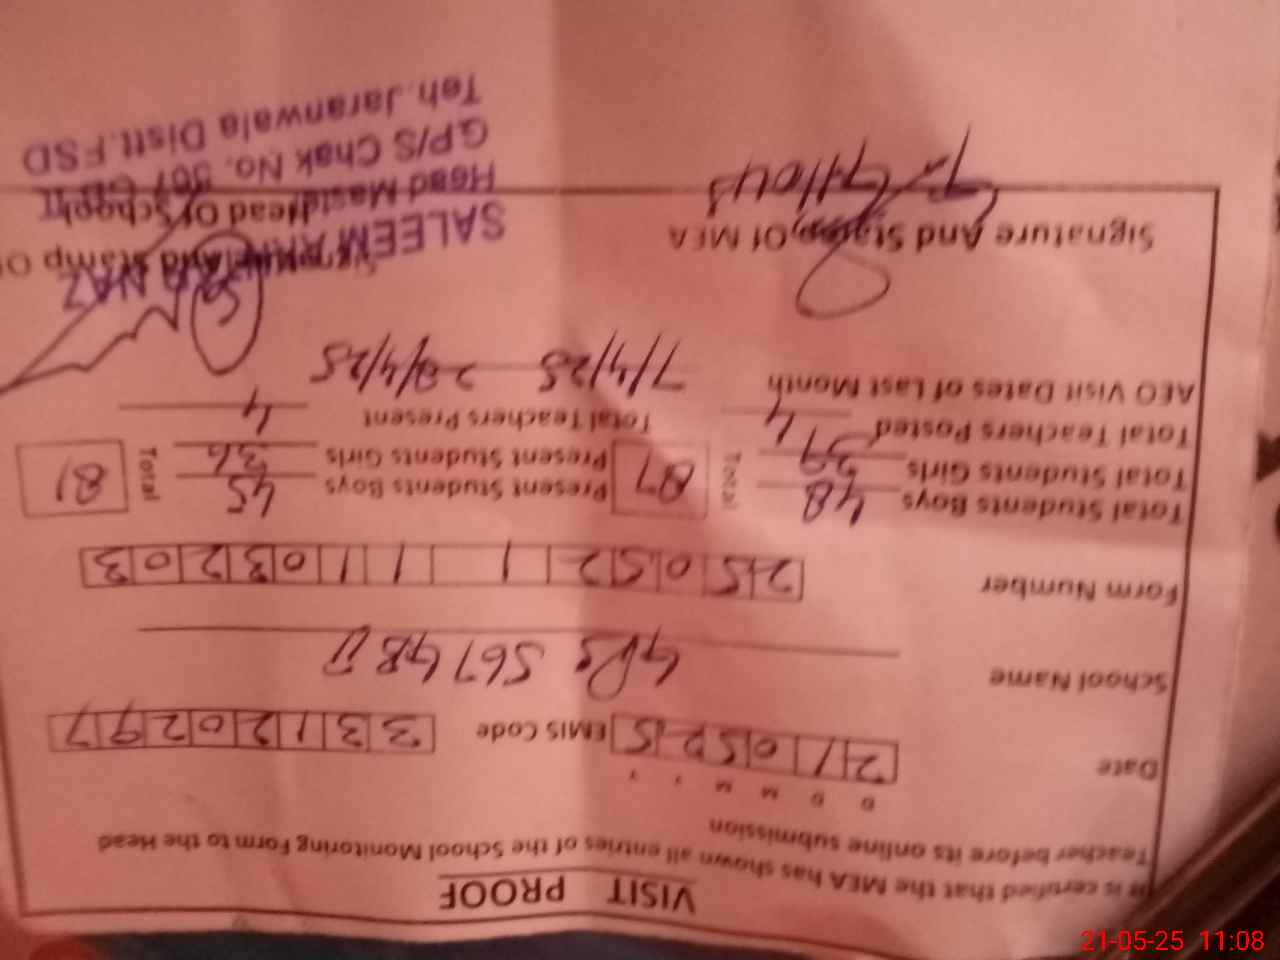 VISIT PROOF
It is certified that the MEA has shown all entries of the School Monitoring Form to the Head
Teacher before its online submission
D D M M Y Y
Date 210525 EMIS Code 33120297
School Name GPS 567 GB
Form Number 250521 1103203
Total Students Boys 48 Total 87 Present Students Boys 45 Total 81
Total Students Girls 39 Present Students Girls 36
Total Teachers Posted 4 Total Teachers Present 4
AEO Visit Dates of Last Month 7/4/25 28/4/25
Signature And Stamp Of MEA
Stamp Of
Head Of School
SALEEM NAZ
Head Master
GP/S Chak No. 567 GB
Teh. Jaranwala Distt. FSD
21-05-25 11:08